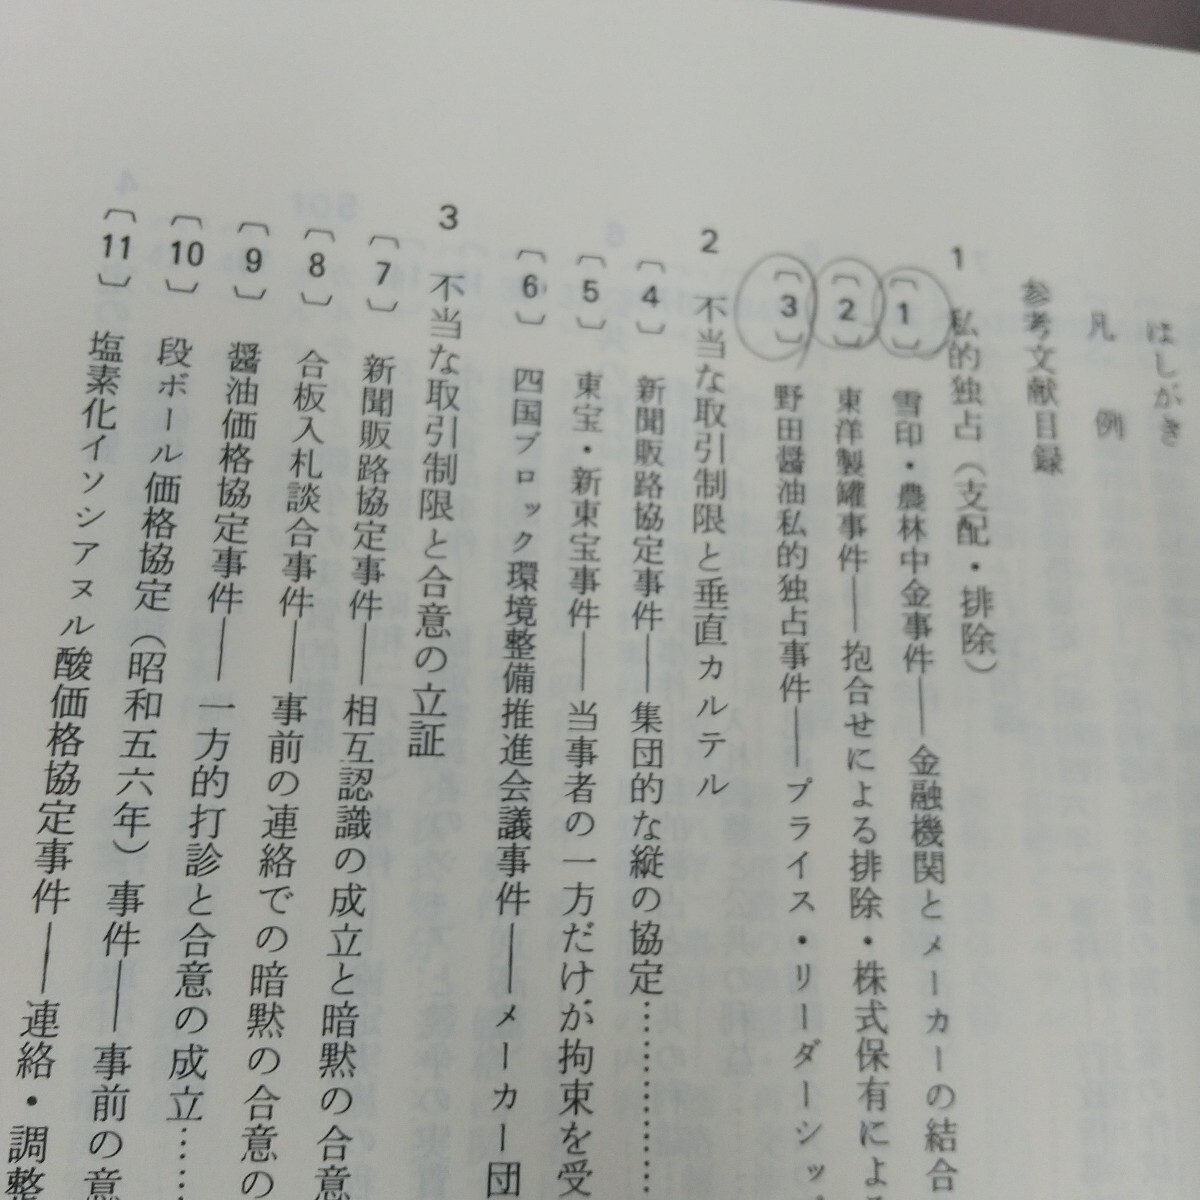 はしがき
凡　例
参考文献目録
1　私的独占（支配・排除）
〔1〕　雪印・農林中金事件――金融機関とメーカーの結合
〔2〕　東洋製罐事件――抱合せによる排除・株式保有による
〔3〕　野田醤油私的独占事件――プライス・リーダーシップ
2　不当な取引制限と垂直カルテル
〔4〕　新聞販路協定事件――集団的な縦の協定……
〔5〕　東宝・新東宝事件――当事者の一方だけが拘束を受
〔6〕　四国ブロック環境整備推進会議事件――メーカー団
3　不当な取引制限と合意の立証
〔7〕　新聞販路協定事件――相互認識の成立と暗黙の合意
〔8〕　合板入札談合事件――事前の連絡での暗黙の合意の
〔9〕　醤油価格協定事件――一方的打診と合意の成立……
〔10〕　段ボール価格協定（昭和五六年）事件――事前の意
〔11〕　塩素化イソシアヌル酸価格協定事件――連絡・調整